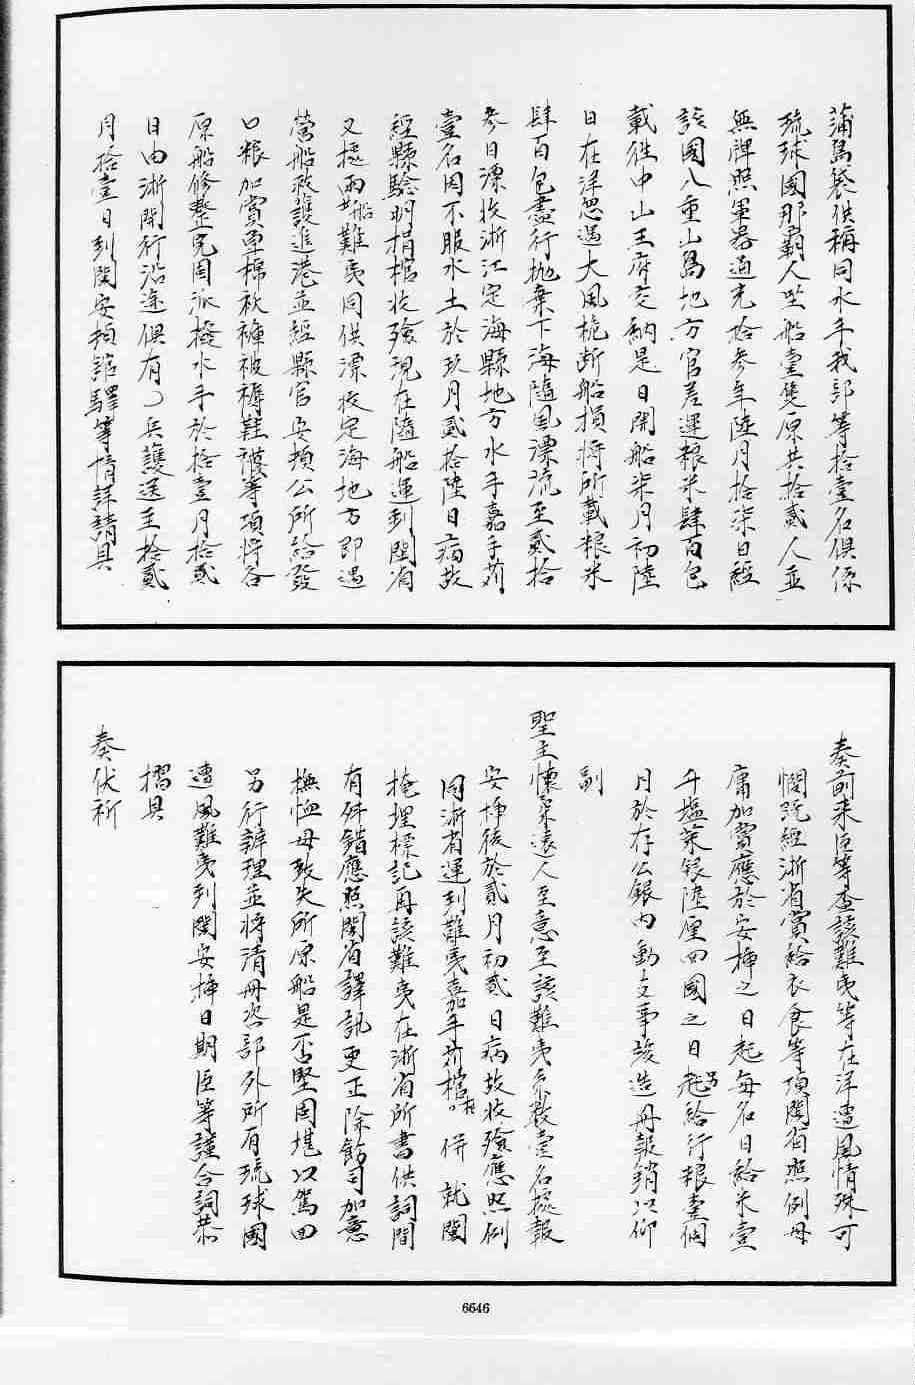 蒲島袋供稱同水手我部等拾壹名俱係
琉球國那霸人坐船壹隻原共拾貳人並
無牌照軍器道光拾參年陸月拾柒日經
該國八重山島地方官差運粮米肆百包
載往中山王府交納是日開船柒月初陸
日在洋忽遇大風桅斷船損將所載粮米
肆百包盡行拋棄下海隨風漂流至貳拾
參日漂收浙江定海縣地方水手嘉手苅
壹名因不服水土於玖月貳拾陸日病故
經縣驗明棺柩收殮現在隨船運到閩省
又據兩船難夷同供漂收定海地方即遇
營船救護進港並經縣官安頓公所給發
口粮加賞單棉衣褲被褥鞋襪等項將各
原船修整完固派撥水手於拾壹月拾貳
日由浙開行沿途俱有兵護送至拾貳
月拾壹日到閩安頓館驛等情詳請具
奏前来臣等查該難夷等在洋遭風情殊可
憫既經浙省賞給衣食等項閩省照例毋
庸加賞應於安插之日起每名日給米壹
升塩菜銀陸厘回國之日另給行粮壹個
月於存公銀內動支事竣造冊報銷以仰
副
聖主懷柔遠人至意至該難夷 壹名據報
安插後於貳月初貳日病故收殮應照例
同浙省運到難夷嘉手苅棺柩併就閩
掩埋標記再該難夷在浙省所書供詞間
有舛錯應照閩省譯訊更正除飭司加意
撫恤毋致失所原船是否堅固堪以駕回
另行辦理並將清冊咨部外所有琉球國
遭風難夷到閩安插日期臣等謹合詞恭
摺具
奏伏祈
6646